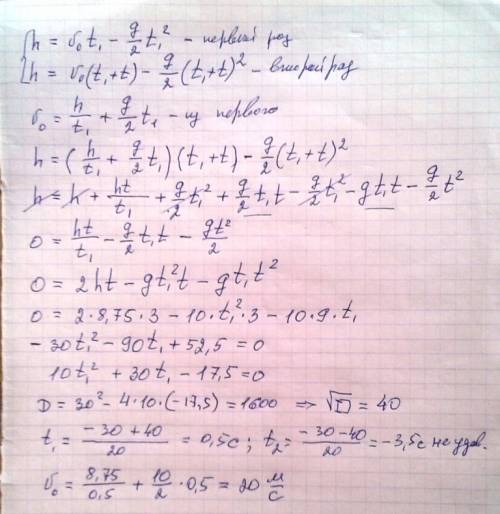 h = v₀t₁ - g/2 t₁² - первый раз
h = v₀(t₁+t) - g/2 (t₁+t)² - второй раз
v₀ = h/t₁ + g/2 t₁ - из первого
h = (h/t₁ + g/2 t₁)(t₁+t) - g/2 (t₁+t)²
h = h + ht/t₁ + g/2 t₁² + g/2 t₁t - g/2 t₁² - gt₁t - g/2 t²
0 = ht/t₁ - g/2 t₁t - gt²/2
0 = 2ht - gt₁²t - gt₁t²
0 = 2·8,75·3 - 10·t₁²·3 - 10·9·t₁
-30t₁² - 90t₁ + 52,5 = 0
10t₁² + 30t₁ - 17,5 = 0
D = 30² - 4·10·(-17,5) = 1600 ⇒ √D = 40
t₁ = (-30+40)/20 = 0,5c ; t₂ = (-30-40)/20 = -3,5c не удов.
v₀ = 8,75/0,5 + 10/2 · 0,5 = 20 м/с